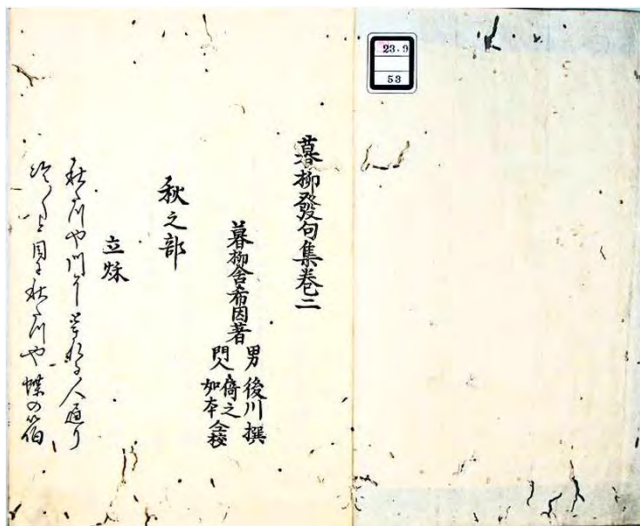 23.9
53
暮柳發句集巻二
暮柳舎希因著
男 後川 撰
門人 倚之
如本 仝校
秋之部
立秌
秋たつや川に人通り
目に秋たつや蝶の宿